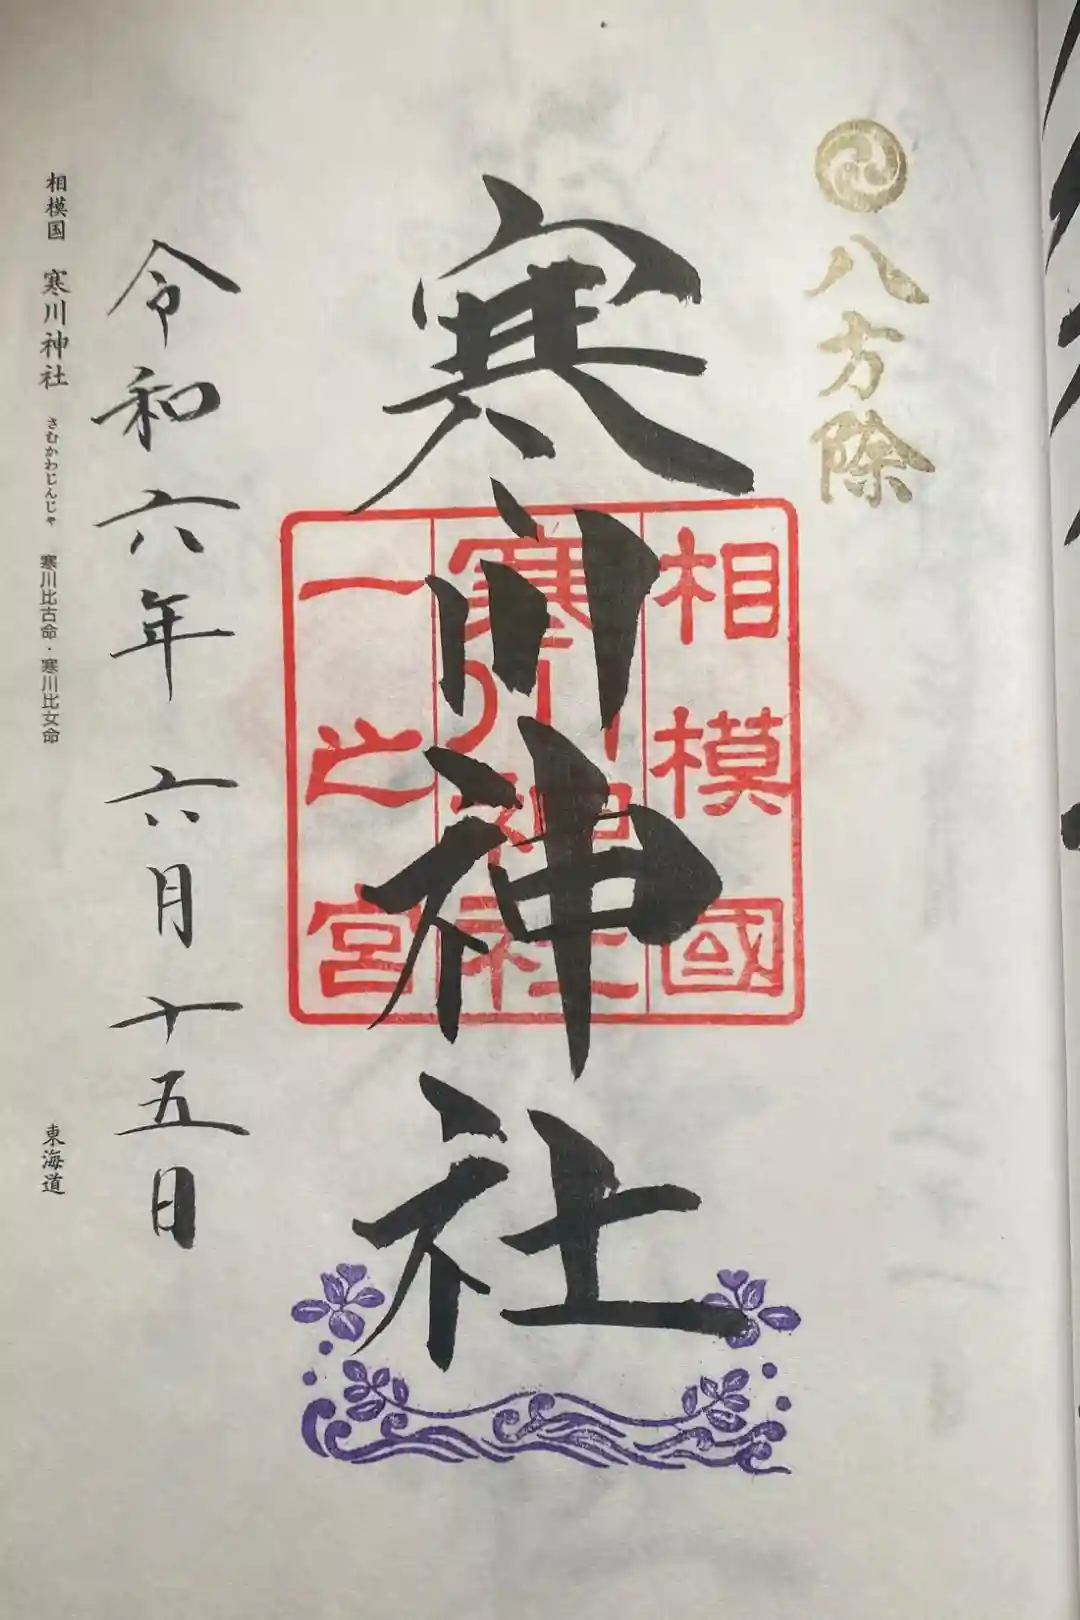 八方除
寒川神社
相模國
寒川神社
一之宮
令和六年六月十五日
相模国 寒川神社 さむかわじんじゃ 寒川比古命・寒川比女命 東海道